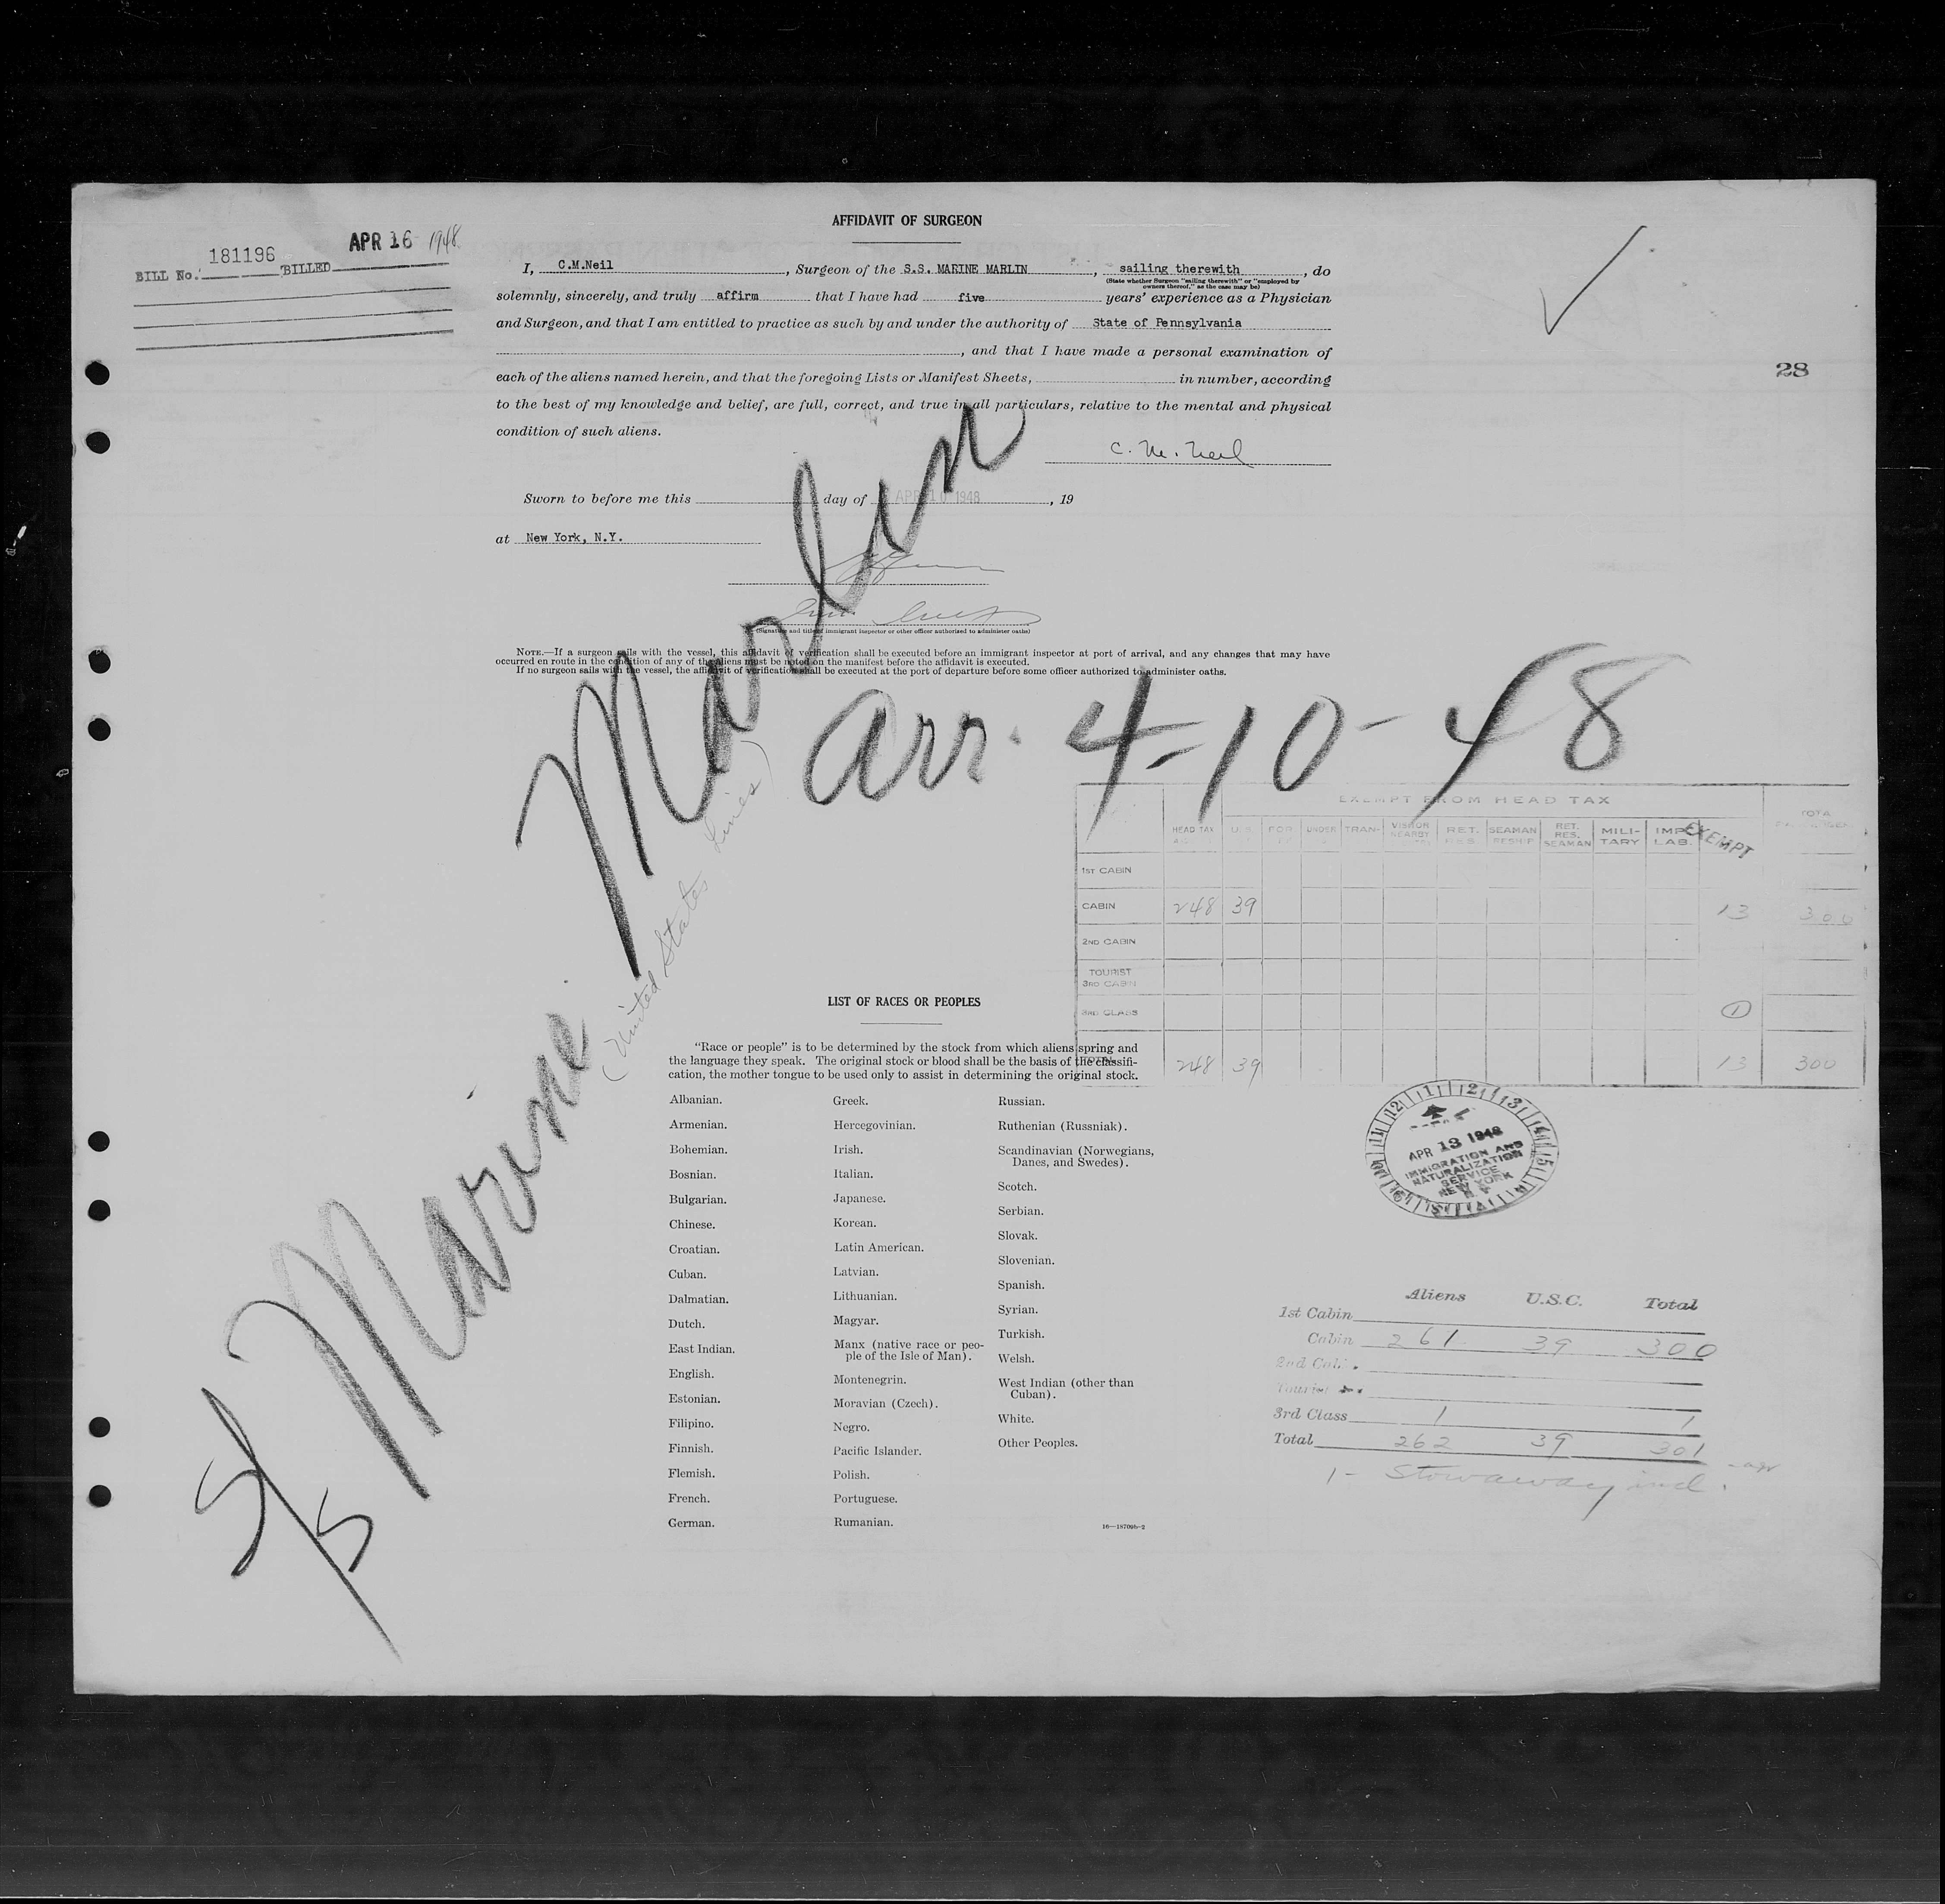 AFFIDAVIT OF SURGEON
181196 APR 16 1948
BILL No. BILLED
28
I, C.M.Neil, Surgeon of the S.S. MARINE MARLIN, sailing therewith, do
(State whether Surgeon "sailing therewith" or "employed by
owners thereof," as the case may be)
solemnly, sincerely, and truly affirm that I have had five years' experience as a Physician
and Surgeon, and that I am entitled to practice as such by and under the authority of State of Pennsylvania
, and that I have made a personal examination of
each of the aliens named herein, and that the foregoing Lists or Manifest Sheets, in number, according
to the best of my knowledge and belief, are full, correct, and true in all particulars, relative to the mental and physical
condition of such aliens.
C. M. Neil
Sworn to before me this day of APR 10 1948, 19
at New York, N.Y.
(Signature and title of immigrant inspector or other officer authorized to administer oaths)
NOTE.—If a surgeon sails with the vessel, this affidavit of verification shall be executed before an immigrant inspector at port of arrival, and any changes that may have
occurred en route in the condition of any of the aliens must be noted on the manifest before the affidavit is executed.
If no surgeon sails with the vessel, the affidavit of verification shall be executed at the port of departure before some officer authorized to administer oaths.
S/S Marine Marlin
(United States Lines)
arr. 4-10-48
EXEMPT FROM HEAD TAX
HEAD TAX U.S. FOR UNDER TRAN- VISITOR NEARBY RET. RES. SEAMAN RESHIP RET. RES. SEAMAN MILI- TARY IMP. LAB. EXEMPT TOTAL
1ST CABIN
CABIN 248 39 13 300
2ND CABIN
TOURIST
3RD CABIN
3RD CLASS 1
TOTAL 248 39 13 300
LIST OF RACES OR PEOPLES
"Race or people" is to be determined by the stock from which aliens spring and
the language they speak. The original stock or blood shall be the basis of the classifi-
cation, the mother tongue to be used only to assist in determining the original stock.
Albanian.
Armenian.
Bohemian.
Bosnian.
Bulgarian.
Chinese.
Croatian.
Cuban.
Dalmatian.
Dutch.
East Indian.
English.
Estonian.
Filipino.
Finnish.
Flemish.
French.
German.
Greek.
Hercegovinian.
Irish.
Italian.
Japanese.
Korean.
Latin American.
Latvian.
Lithuanian.
Magyar.
Manx (native race or peo-
ple of the Isle of Man).
Montenegrin.
Moravian (Czech).
Negro.
Pacific Islander.
Polish.
Portuguese.
Rumanian.
Russian.
Ruthenian (Russniak).
Scandinavian (Norwegians,
Danes, and Swedes).
Scotch.
Serbian.
Slovak.
Slovenian.
Spanish.
Syrian.
Turkish.
Welsh.
West Indian (other than
Cuban).
White.
Other Peoples.
16—18709b-2
APR 13 1948
IMMIGRATION AND
NATURALIZATION
SERVICE
NEW YORK
N. Y.
Aliens U.S.C. Total
1st Cabin
Cabin 261 39 300
2nd Cab.
Tourist
3rd Class 1 1
Total 262 39 301
1- Stowaway incl.